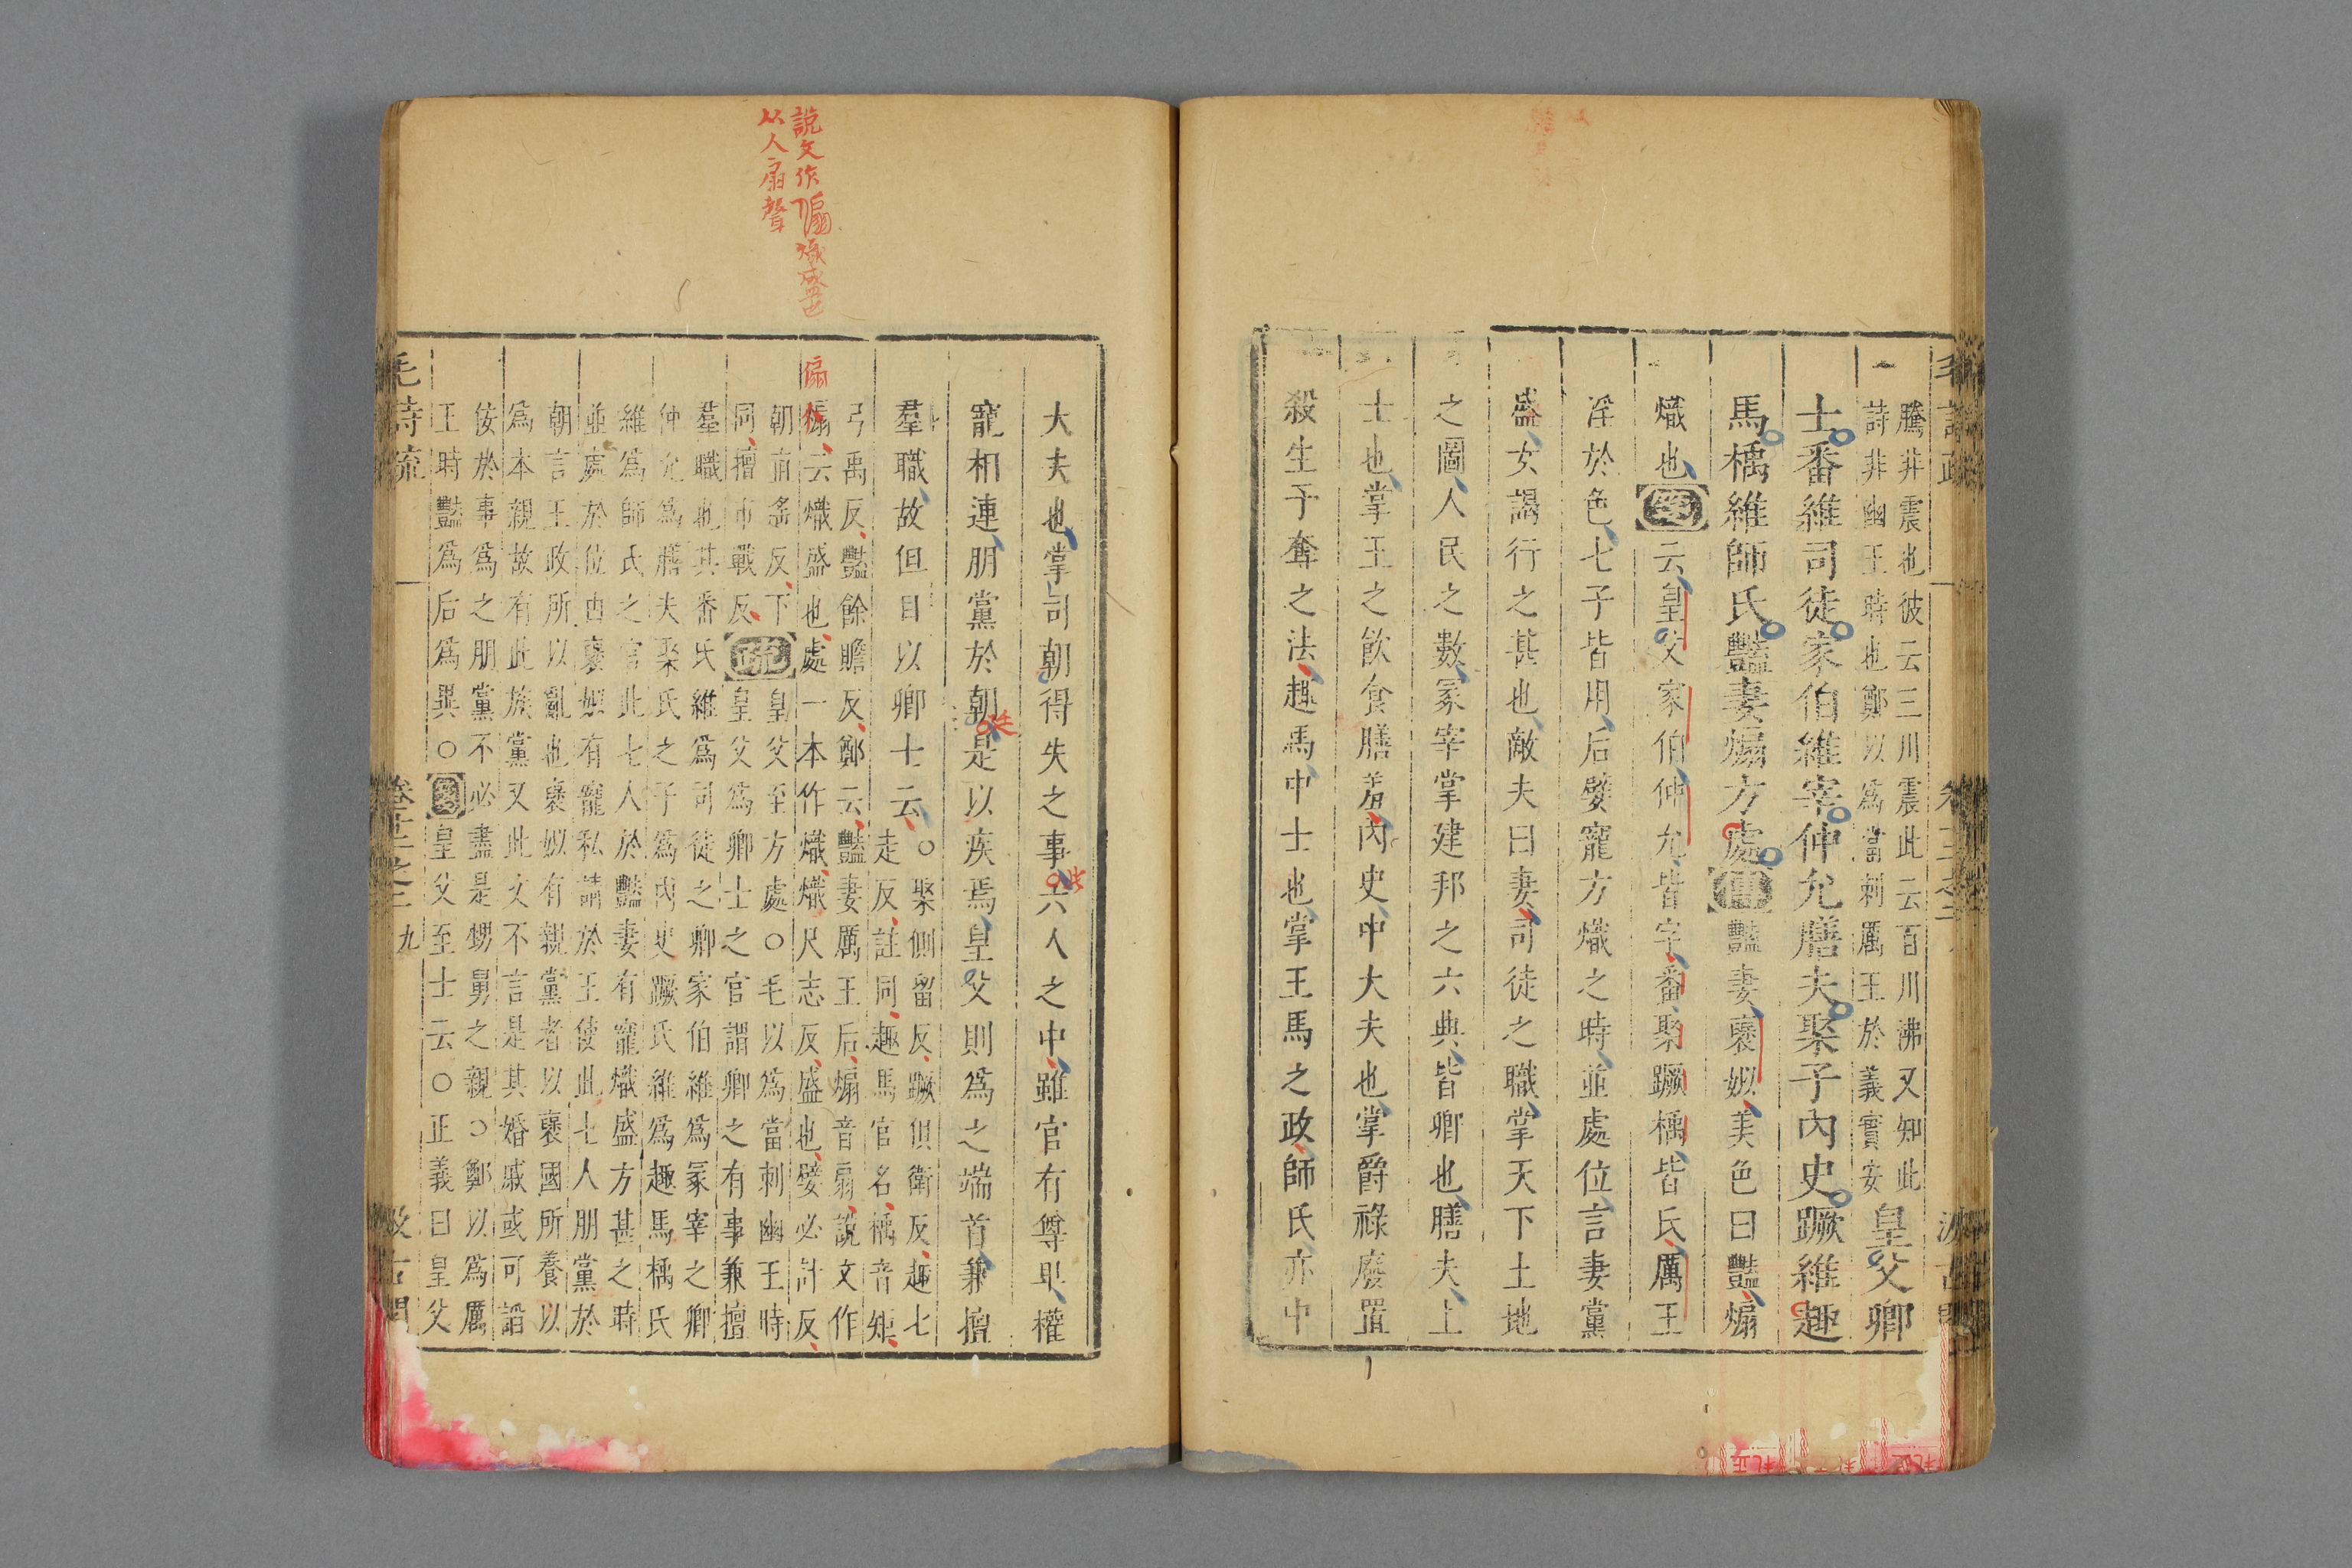 騰井震也彼云三川震此云百川沸又知此
詩非幽王時也鄭以爲當刺厲王於義實安
皇父卿
士番維司徒家伯維宰仲允膳夫聚子內史蹶維趣
馬楀維師氏豔妻煽方處傳豔妻襃姒美色曰豔煽
熾也箋云皇父家伯仲允皆字番聚蹶楀皆氏厲王
淫於色七子皆用后嬖寵方熾之時並處位言妻黨
盛女謁行之甚也敵夫曰妻司徒之職掌天下土地
之圖人民之數冢宰掌建邦之六典皆卿也膳夫上
士也掌王之飲食膳羞內史中大夫也掌爵祿廢置
殺生予奪之法趣馬中士也掌王馬之政師氏亦中
大夫也掌司朝得失之事六人之中雖官有尊卑權
此
寵相連朋黨於朝是以疾焉皇父則爲之端首兼擅
廷
羣職故但目以卿士云
○聚側留反蹶俱衛反趣七
走反註同趣馬官名楀音矩
弓禹反豔餘贍反鄭云豔妻厲王后煽音扇說文作
傓云熾盛也處一本作熾熾尺志反盛也嬖必計反
朝直遙反下
同擅市戰反
疏
皇父至方處○毛以爲當刺幽王時
皇父爲卿士之官謂卿之有事兼擅
羣職也其番氏維爲司徒之卿家伯維爲冢宰之卿
仲允爲膳夫聚氏之子爲內史蹶氏維爲趣馬楀氏
維爲師氏之官此七人於豔妻有寵熾盛方甚之時
並處於位由襃姒有寵私請於王使此七人朋黨於
朝言王政所以亂也襃姒有親黨者以襃國所養以
爲本親故有此族黨又此文不言是其婚戚或可諂
佞於事爲之朋黨不必盡是甥舅之親○鄭以爲厲
王時豔爲后爲異○箋皇父至士云○正義曰皇父
說文作傓熾盛也
从人扇聲
傓
毛詩疏
卷十二之二
九
汲古閣